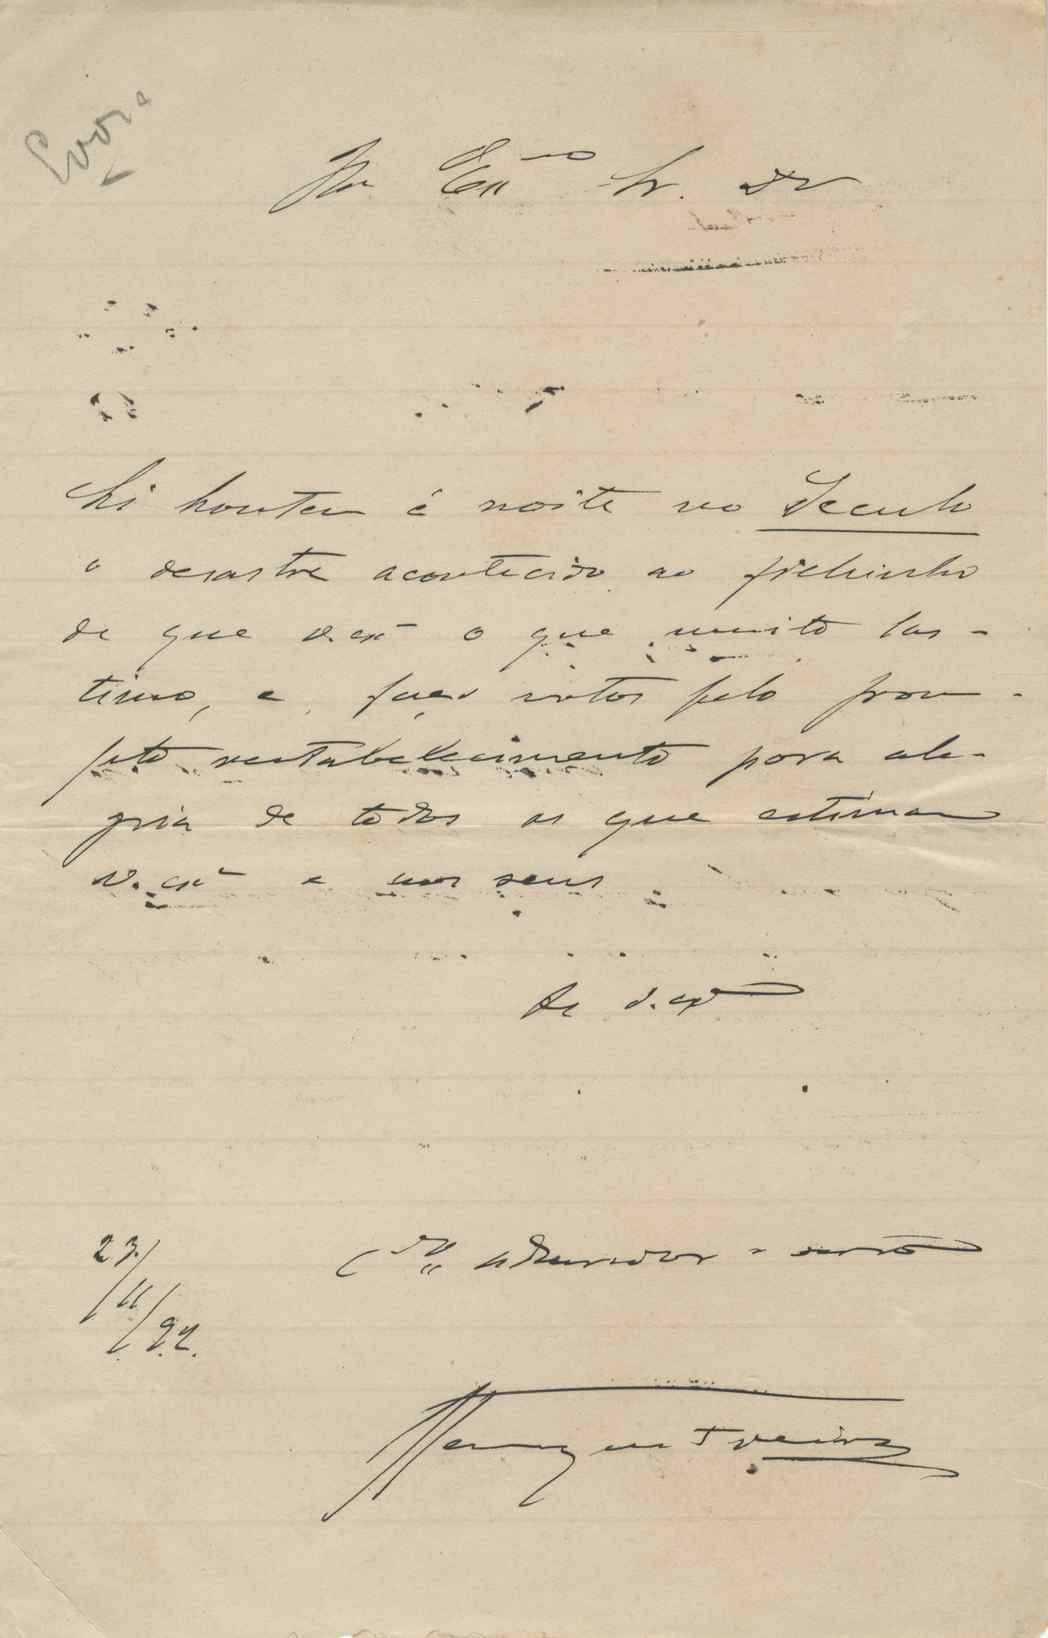 Evora
Ex.mo Sr. Dr
Li hontem á noite no Seculo
o desastre acontecido ao filhinho
de que v. exª o que muito las-
timo, e faço votos pelo prom-
pto restabelecimento para ale-
gria de todos os que estimam
v. exª e aos seus
De v. exª
23/11/92.
admirador e
Henrique Freire